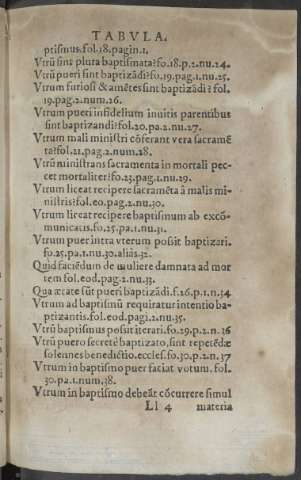 TABVLA.
ptismus.fol.18.pagin.1.
Vtrũ sint plura baptismata?fo.18.p.2.nu.24.
Vtrũ pueri sint baptizãdi?fo.19.pag.1.nu.25.
Vtrum furiosi & amẽtes sint baptizãdi? fol.
19.pag.2.num.26.
Vtrum pueri infidelium inuitis parentibus
sint baptizandi?fol.20.pa.2.nu.27.
Vtrum mali ministri cõferant vera sacramẽ
ta?fol.21.pag.2.num.28.
Vtrũ ministrans sacramenta in mortali pec-
cet mortaliter?fo.23.pag.1.nu.29.
Vtrum liceat recipere sacramẽta à malis mi-
nistris?fol.eo.pag.2.nu.30.
Vtrum liceat recipere baptismum ab excõ-
municatis.fo.25.pa.1.nu.31.
Vtrum puer intra vterum possit baptizari.
fo.25.pa.1.nu.30.alias.32.
Quid faciẽdum de muliere damnata ad mor
tem.fol.eod.pag.2.nu.33.
Qua ætate sũt pueri baptizãdi.f.26.p.1.n.34
Vtrum ad baptismũ requiratur intentio ba-
ptizantis.fol.eod.pagi.2.nu.35.
Vtrũ baptismus possit iterari.fo.29.p.2.n.36
Vtrũ puero secretè baptizato,sint repetẽdæ
solennes benedictio.eccles.fo.30.p.2.n.37
Vtrum in baptismo puer faciat votum.fol.
30.pa.1.num.38.
Vtrum in baptismo debeãt cõcurrere simul
Ll 4 materia